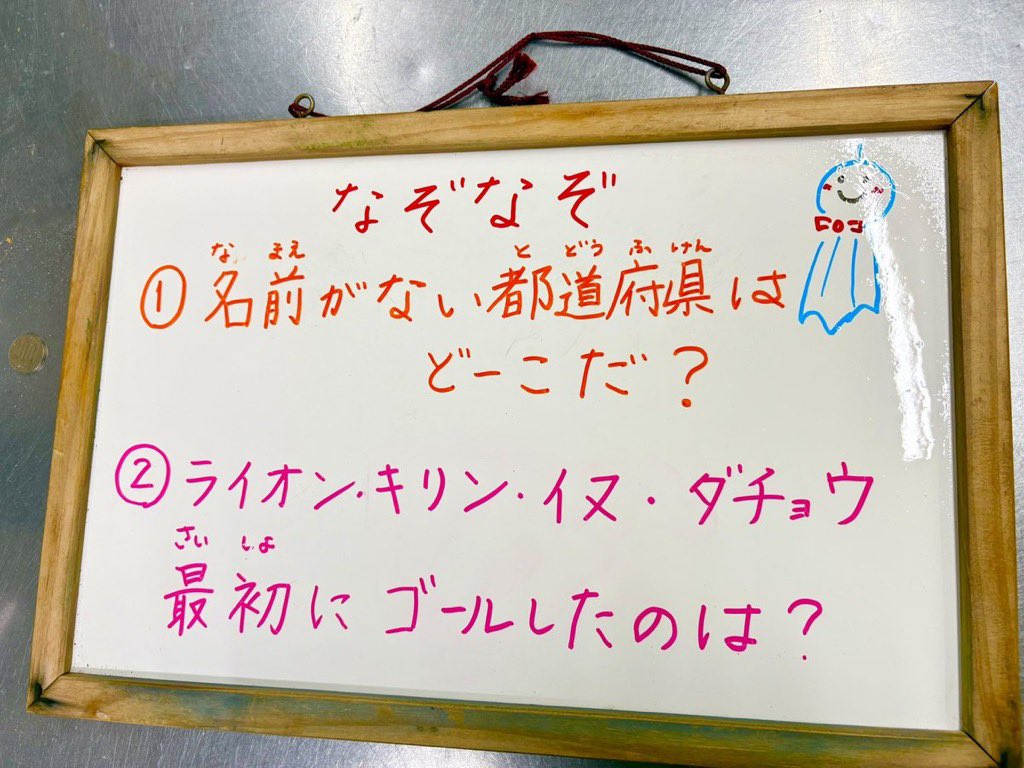 なぞなぞ
なまえ とどうふけん
①名前がない都道府県は
どーこだ?
②ライオン・キリン・イヌ・ダチョウ
さいしょ
最初にゴールしたのは?